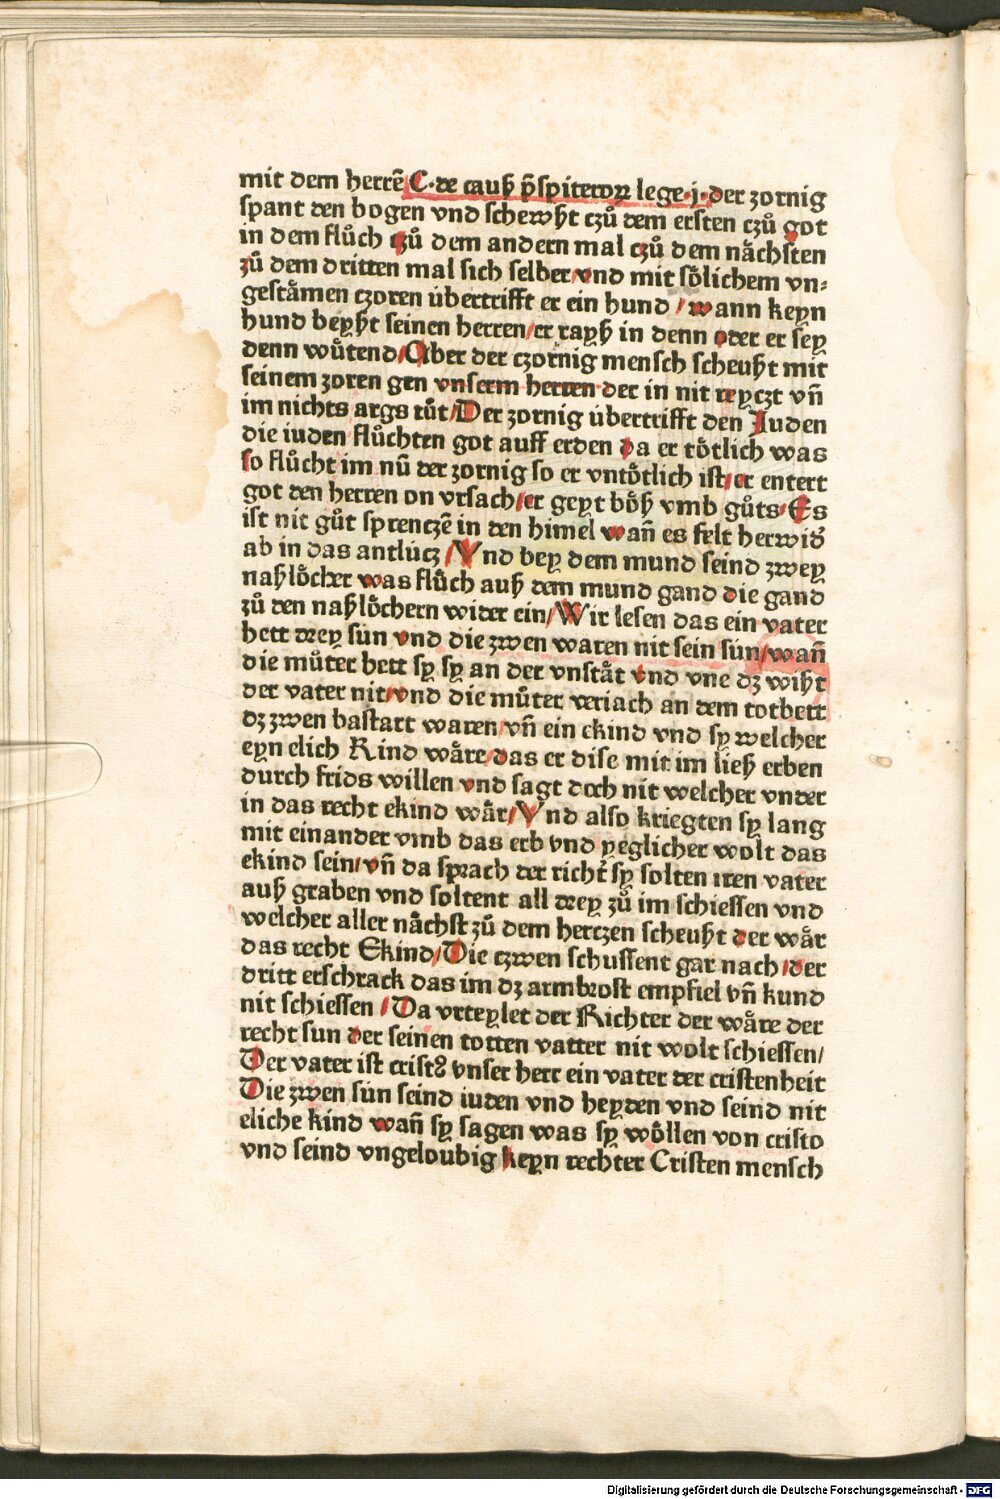 mit dem herrē C·de cauß p̄spiteroꝝ lege·j·der zornig
spant den bogen vnd schewßt czů dem ersten czů got
in dem flůch czů dem andern mal czů dem nächsten
zů dem dritten mal sich selber/vnd mit sölichem vn⸗
gestämen czoren übertrifft er ein hund/wann keyn
hund beyßt seinen herren/er rayß in denn oder er sey
denn wůtend/Aber der czornig mensch scheußt mit
seinem zoren gen vnserm herren der in nit reyczt vn̄
im nichts args tůt/Der zornig übertrifft den Juden
die iuden flůchten got auff erden da er tötlich was
so flůcht im nů der zornig so er vntötlich ist/er entert
got den herren on vrsach/er geyt böß vmb gůts/Es
ist nit gůt sprenczē in den himel wan̄ es felt herwid̕
ab in das antlücz/Vnd bey dem mund seind zwey
naßlöcher was flůch auß dem mund gand die gand
zů den naßlöchern wider ein/Wir lesen das ein vater
hett drey sün vnd die zwen waren nit sein sün/wan̄
die můter hett sy sy an der vnstät vnd vne dz wißt
der vater nit/vnd die můter veriach an dem totbett
dz zwen bastart waren/vn̄ ein ekind vnd sy welcher
eyn elich Kind wäre/das er dise mit im ließ erben
durch frids willen vnd sagt doch nit welcher vnder
in das recht ekind wär/Vnd also kriegten sy lang
mit einander vmb das erb vnd yeglicher wolt das
ekind sein/vn̄ da sprach der richt̕ sy solten iren vater
auß graben vnd soltent all drey zů im schiessen vnd
welcher aller nächst zů dem herczen scheußt der wär
das recht Ekind/Die czwen schussent gar nach/der
dritt erschrack das im dz armbrost empfiel vn̄ kund
nit schiessen/Da vrteylet der Richter der wäre der
recht sun der seinen totten vatter nit wolt schiessen/
Der vater ist cristꝰ vnser herr ein vater der cristenheit
Die zwen sün seind iuden vnd heyden vnd seind nit
eliche kind wan̄ sy sagen was sy wöllen von cristo
vnd seind vngeloubig keyn rechter Cristen mensch
Digitalisierung gefördert durch die Deutsche Forschungsgemeinschaft - DFG